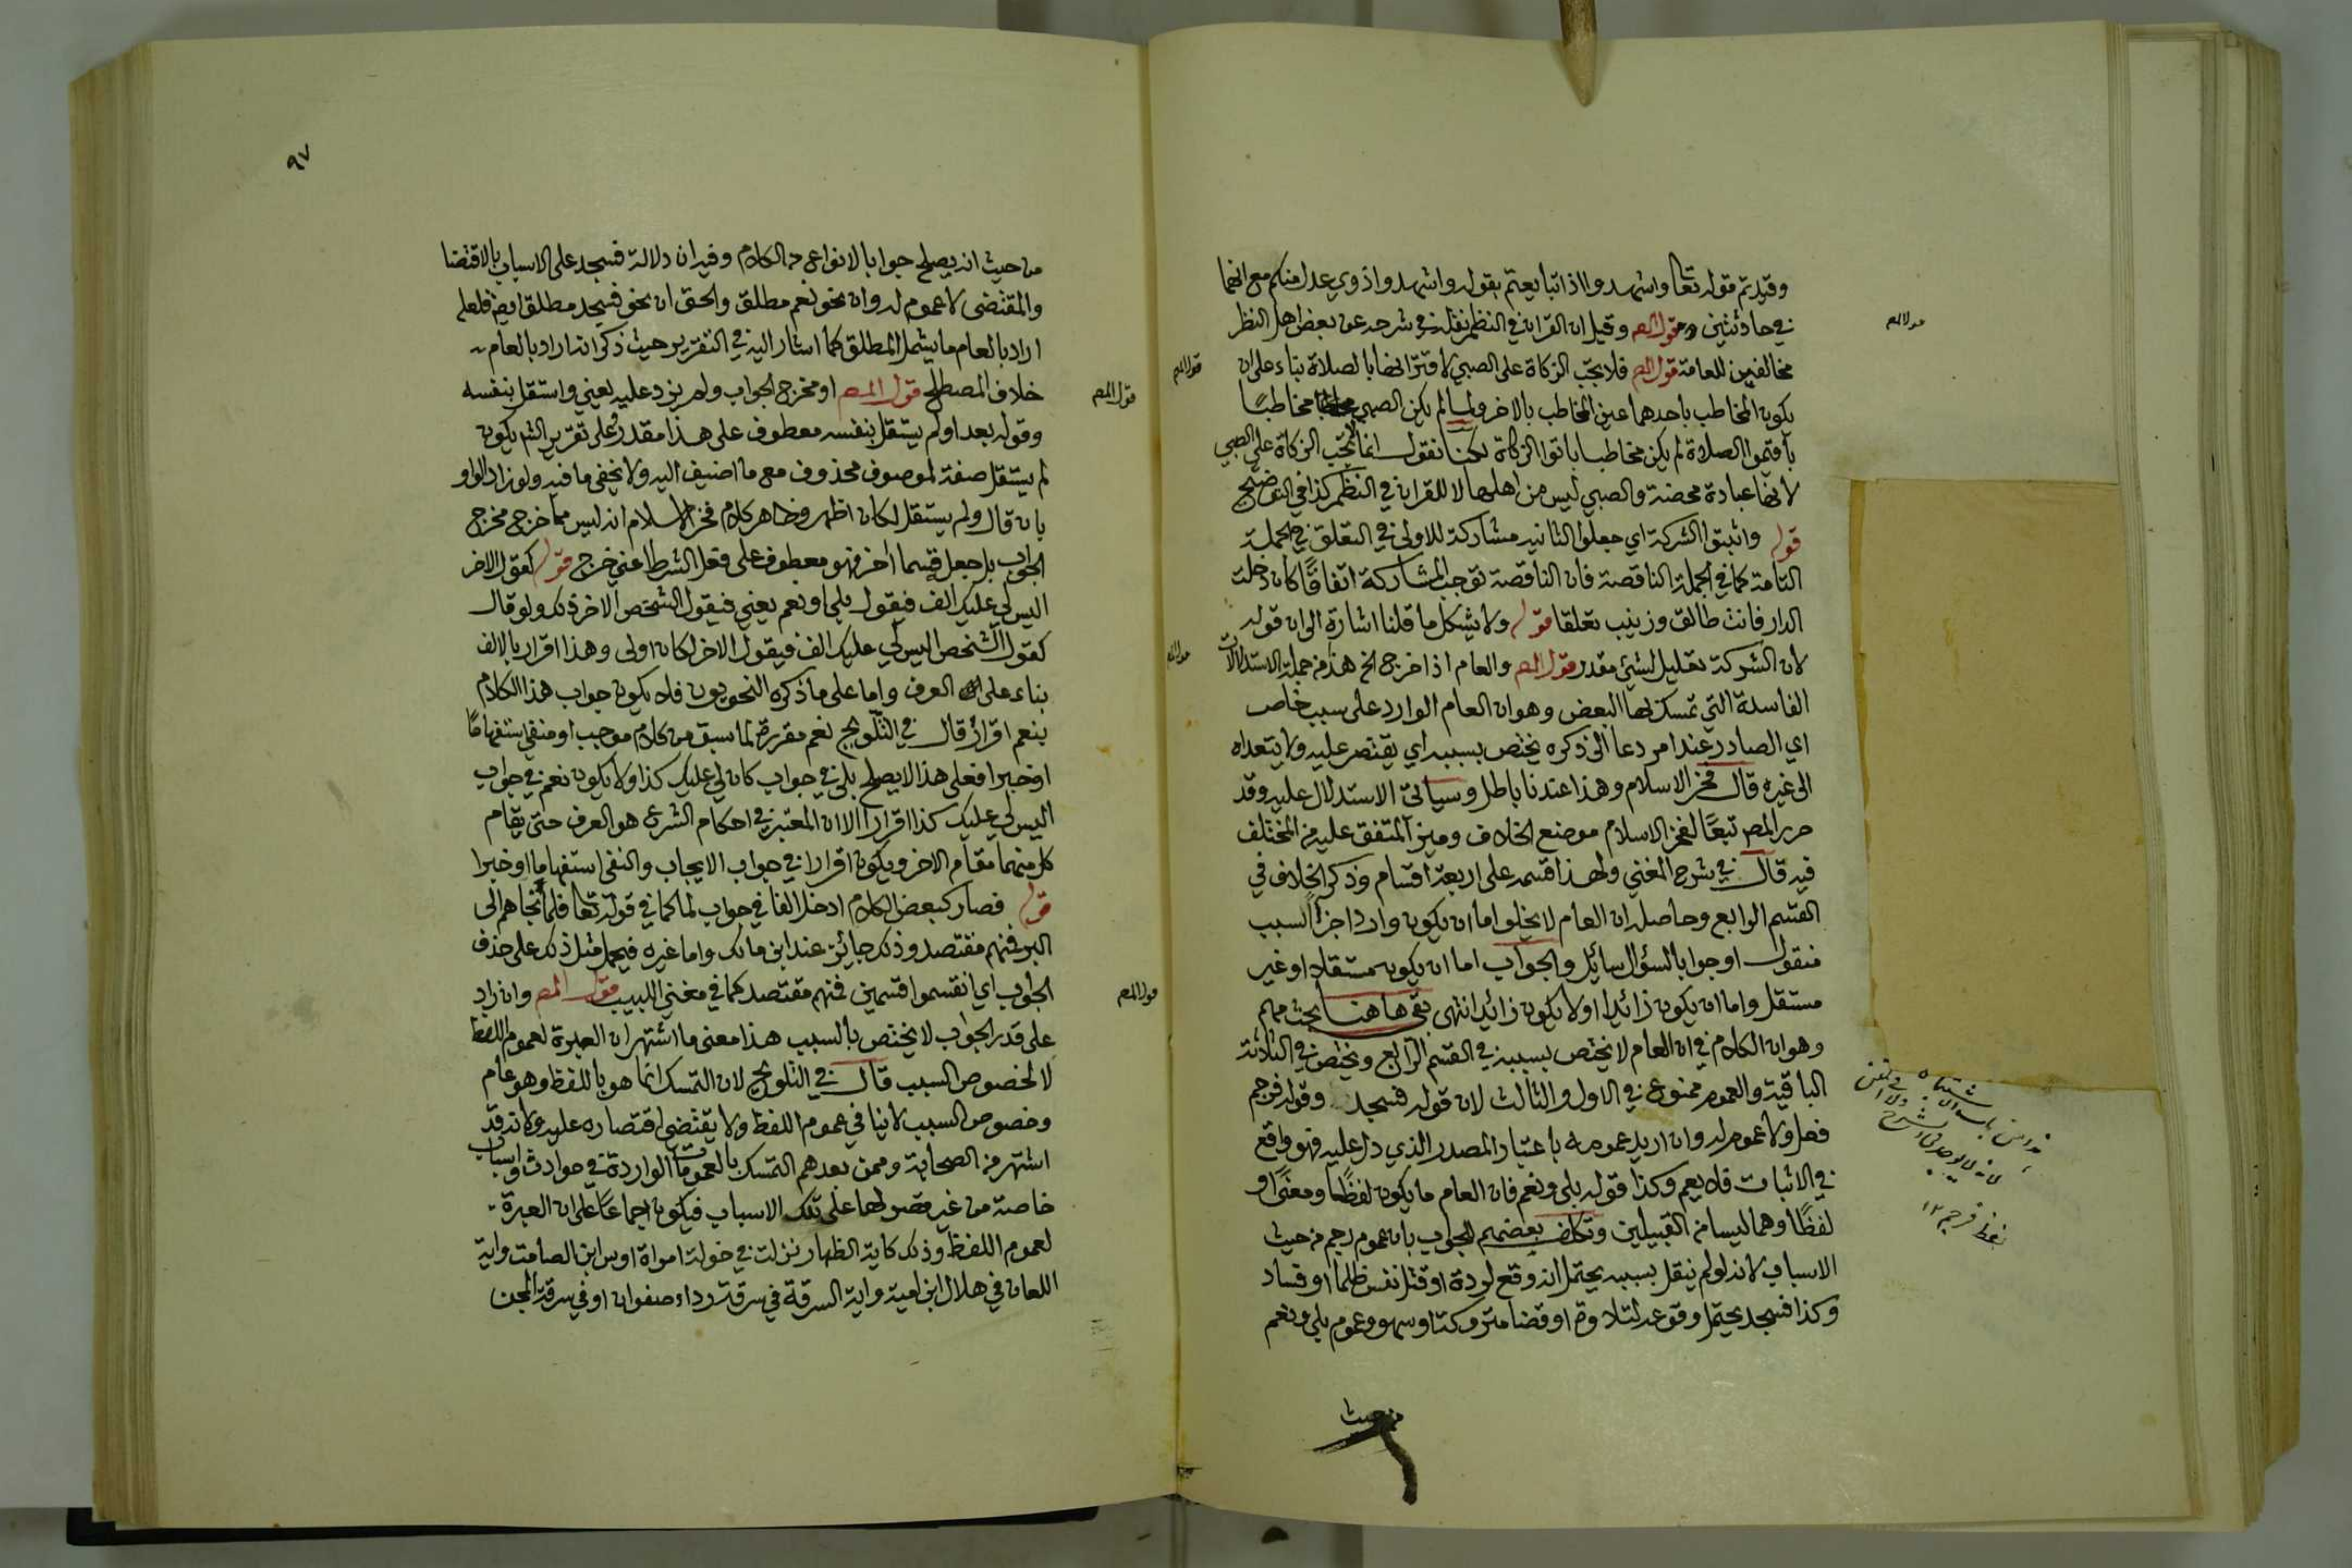 وقيد ثم قوله تعا واشهدوا اذا تبايعتم بقوله واشهدوا ذوي عدل منكم مع انهما
في حادثتين قول المص وقيل ان القران في النظم نقله في شرحه عن بعض اهل النظر
مخالفين للعامة قول المص فلا تجب الزكاة على الصبي لاقترانها بالصلاة بناء على ان
يكون المخاطب باحدهما عين المخاطب بالاخر ولما لم يكن الصبي مخاطبًا
بأقيموا الصلاة لم يكن مخاطبا باتوا الزكاة لكنا نقول انما لا تجب الزكاة على الصبي
لانها عبادة محضة والصبي ليس من اهلها لا للقران في النظم كذا في التوضيح
قوله واثبتوا الشركة اي جعلوا الثانية مشاركة للاولى في التعلق في الجملة
التامة كما في الجملة الناقصة فان الناقصة توجب المشاركة اتفاقًا كان دخلت
الدار فانت طالق وزينب تعلقا قوله ولا يشكل ما قلنا اشارة الى ان قوله
لان الشركة تعليل لشيئ مقدر قول المص والعام اذا خرج الخ هذا من جملة الاستدلالات
الفاسدة التي تمسك بها البعض وهو ان العام الوارد على سبب خاص
اي الصادر عند امر دعا الى ذكره يختص بسببه اي يقتصر عليه ولا يتعداه
الى غيره قال فخر الاسلام وهذا عندنا باطل وسياتي الاستدلال عليه وقد
حرر المص تبعًا لفخر الاسلام موضع الخلاف وميز المتفق عليه من المختلف
فيه قال في شرح المغني ولهذا قسمه على اربعة اقسام وذكر الخلاف في
القسم الرابع وحاصله ان العام لا يخلو اما ان يكون واردا جزاء لسبب
منقول او جوابا لسؤال سائل والجواب اما ان يكون مستقلا او غير
مستقل واما ان يكون زائدا او لا يكون زائدا انتهى بقي هاهنا بحث مهم
وهو ان الكلام في ان العام لا يختص بسببه في القسم الرابع ويختص في الثلاثة
الباقية والعموم ممنوع في الاول والثالث لان قوله فسجد وقوله فرجم
فعل ولا عموم له وان اريد عمومه باعتبار المصدر الذي دل عليه فهو واقع
في الاثبات فلا يعم وكذا قوله بلى ونعم فان العام ما يكون لفظًا ومعنًى او
لفظًا وهما ليسا من القبيلين وتكلف بعضهم الجواب بان عموم رجم من حيث
الاسباب لانه لو لم ينقل بسببه يحتمل انه وقع لردة او قتل نفس ظلما او فساد
وكذا فسجد يحتمل وقوعه لتلاوة او قضا متروكة او سهو وعموم بلى ونعم
من حيث
قول المص
قول المص
قول المص
لفظ فرجم ١٢
٩٧
من حيث انه يصلح جوابا لانواع من الكلام وفيه ان دلالة فسجد على الاسباب بالاقتضا
والمقتضى لا عموم له وان نحو نعم مطلق والحق ان نحو فسجد مطلق ايض فلعله
اراد بالعام ما يشمل المطلق كما اشار اليه في التقرير حيث ذكر انه اراد بالعام
خلاف المصطلح قول المص او مخرج الجواب ولم يزد عليه يعني واستقل بنفسه
وقوله بعد اولم يستقل بنفسه معطوف على هذا مقدر وعلى تقرير الش يكون
لم يستقل صفة لموصوف محذوف مع ما اضيف اليه ولا يخفى ما فيه ولو زاد الواو
بان قال ولم يستقل لكان اظهر وظاهر كلام فخر الاسلام انه ليس مما خرج مخرج
الجواب بل جعل قسما اخر فهو معطوف على فعل الشرط اعني خرج قوله كقول الاخر
اليس لي عليك الف فيقول بلى او نعم يعني فيقول الشخص الاخر ذلك ولو قال
كقول الشخص اليس لي عليك الف فيقول الاخر لكان اولى وهذا اقرار بالالف
بناء على العرف واما على ما ذكره النحويون فلا يكون جواب هذا الكلام
بنعم اقرار قال في التلويح نعم مقررة لما سبق من كلام موجب او منفي استفهامًا
او خبرا فعلى هذا لا يصلح بلى في جواب كان لي عليك كذا ولا يكون نعم في جواب
اليس لي عليك كذا اقرارا الا ان المعتبر في احكام الشرع هو العرف حتى يقام
كل منهما مقام الاخر ويكون اقرارا في جواب الايجاب والنفي استفهاما او خبرا
قوله فصار كبعض الكلام ادخل الفا في جواب لما كما في قوله تعا فلما نجاهم الى
البر فمنهم مقتصد وذلك جائز عند ابن مالك واما غيره فيحمل مثل ذلك على حذف
الجواب اي انقسموا قسمين فمنهم مقتصد كما في مغني اللبيب قول المص وان زاد
على قدر الجواب لا يختص بالسبب هذا معنى ما اشتهر ان العبرة لعموم اللفظ
لا لخصوص السبب قال في التلويح لان التمسك انما هو باللفظ وهو عام
وخصوص السبب لا ينافي عموم اللفظ ولا يقتضي اقتصاره عليه ولانه قد
اشتهر من الصحابة وممن بعدهم التمسك بالعمومات الواردة في حوادث واسباب
خاصة من غير قصر لها على تلك الاسباب فيكون اجماعًا على ان العبرة
لعموم اللفظ وذلك كاية الظهار نزلت في خولة امراة اوس ابن الصامت واية
اللعان في هلال ابن امية واية السرقة في سرقة رداء صفوان او في سرقة المجن
قول المص
قول المص